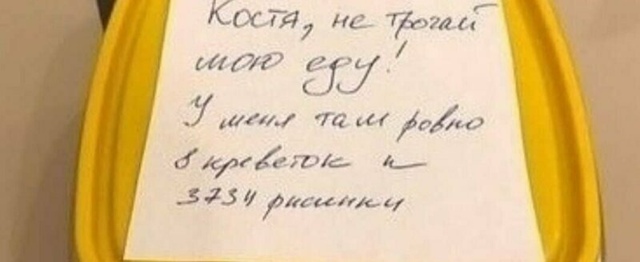 Костя, не трогай
мою еду!
У меня там ровно
8 креветок и
3734 рисинки